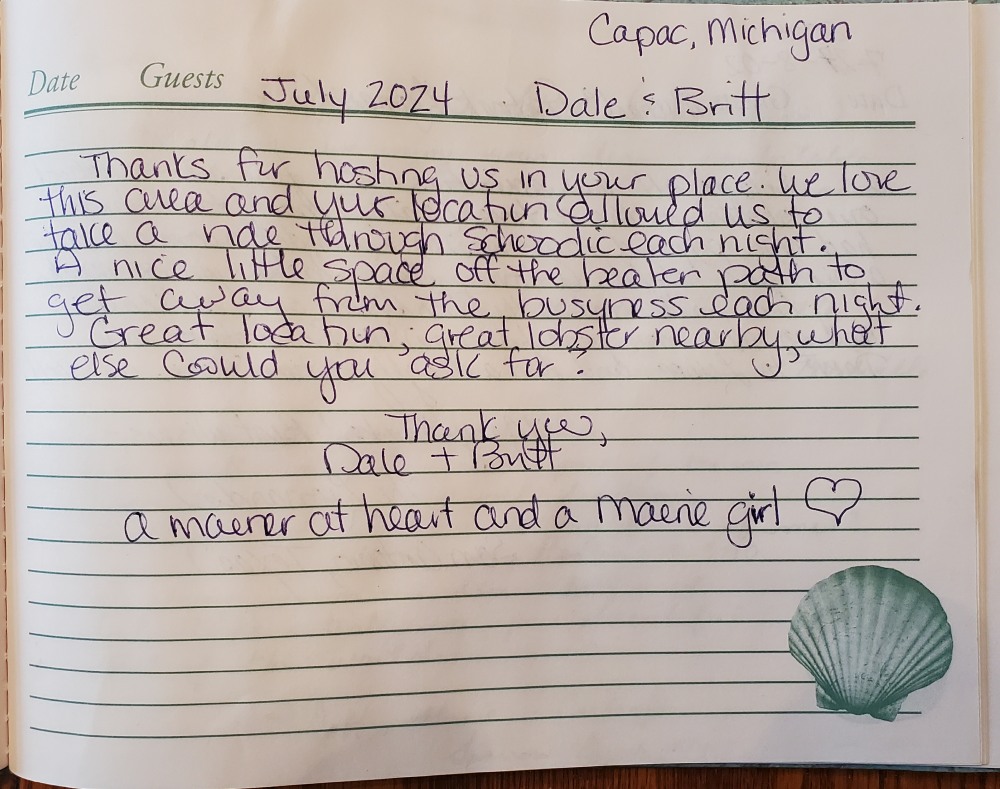 Capac, Michigan
Date Guests July 2024 Dale & Britt
Thanks for hosting us in your place. We love
this area and your location allowed us to
take a ride through Schoodic each night.
A nice little space off the beater path to
get away from the busyness each night.
Great location, great lobster nearby, what
else could you ask for?
Thank you,
Dale + Britt
a maener at heart and a maene girl ♡